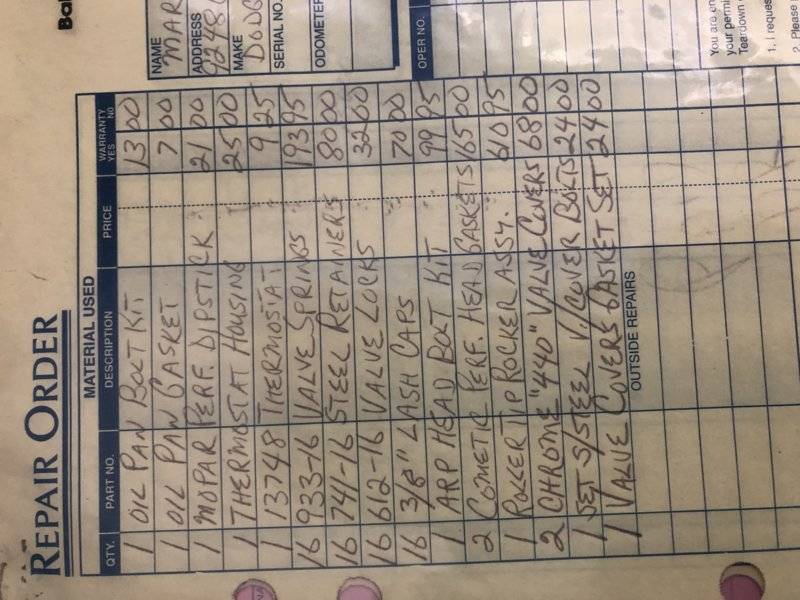 REPAIR ORDER
MATERIAL USED
QTY. PART NO. DESCRIPTION PRICE WARRANTY YES NO
1 OIL PAN BOLT KIT 13 00
1 OIL PAN GASKET 7 00
1 MOPAR PERF. DIPSTICK 21 00
1 THERMOSTAT HOUSING 25 00
1 13748 THERMOSTAT 9 25
16 933-16 VALVE SPRINGS 193 95
16 741-16 STEEL RETAINERS 80 00
16 612-16 VALVE LOCKS 32 00
16 3/8" LASH CAPS 70 00
1 ARP HEAD BOLT KIT 99 95
2 COMETIC PERF. HEAD GASKETS 165 00
1 ROLLER TIP ROCKER ASSY. 610 95
2 CHROME "440" VALVE COVERS 68 00
1 SET S/STEEL V/COVER BOLTS 24 00
1 VALVE COVERS GASKET SET 24 00
OUTSIDE REPAIRS
NAME
MAR
ADDRESS
9248
MAKE
DODG
SERIAL NO.
ODOMETER
OPER NO.
You are en
your permi
Teardown
1. I reques
2. Please